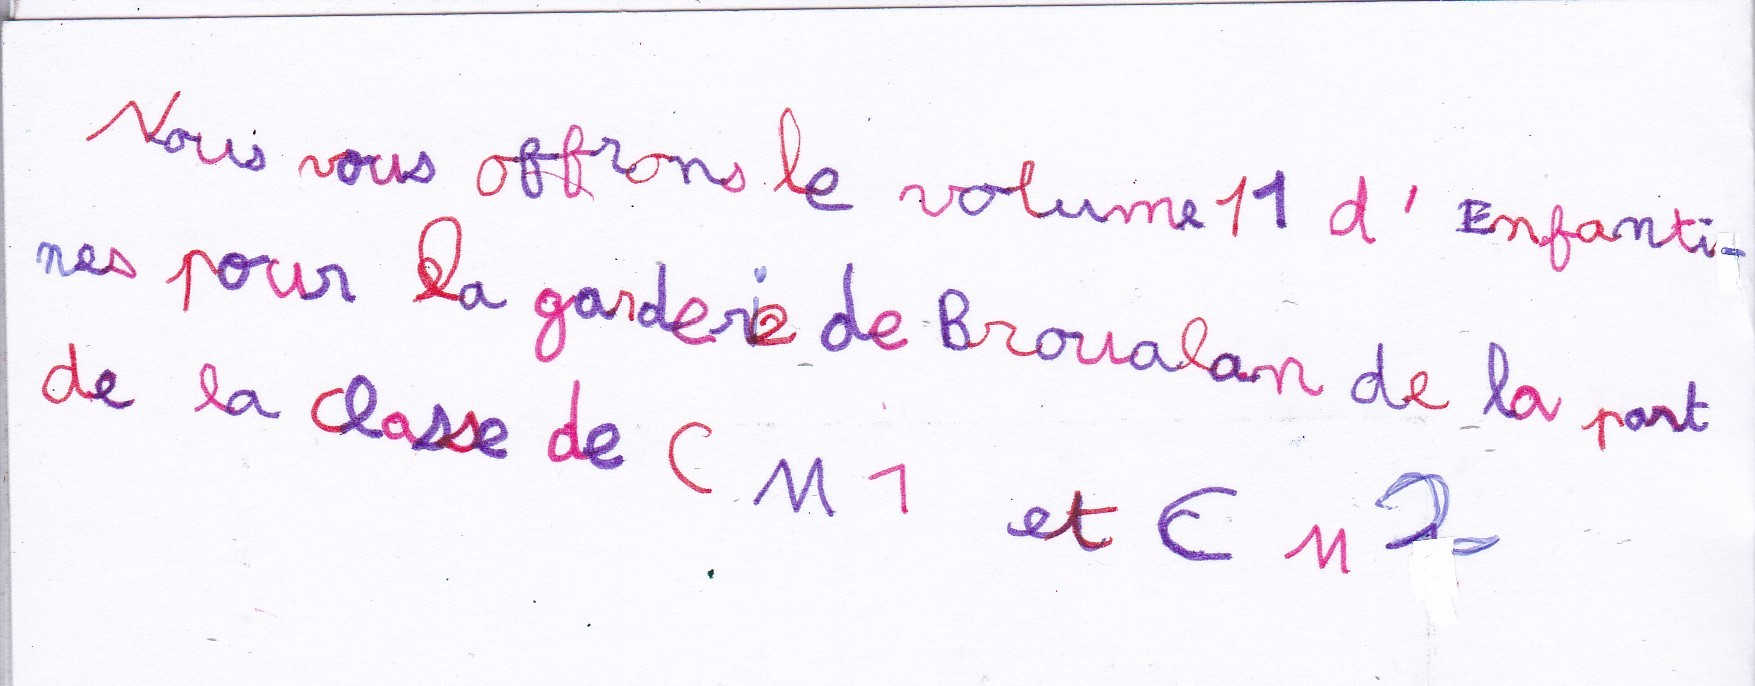 Nous vous offrons le volume 11 d'Enfanti-
nes pour la garderie de Broualan de la part
de la classe de CM1 et CM2